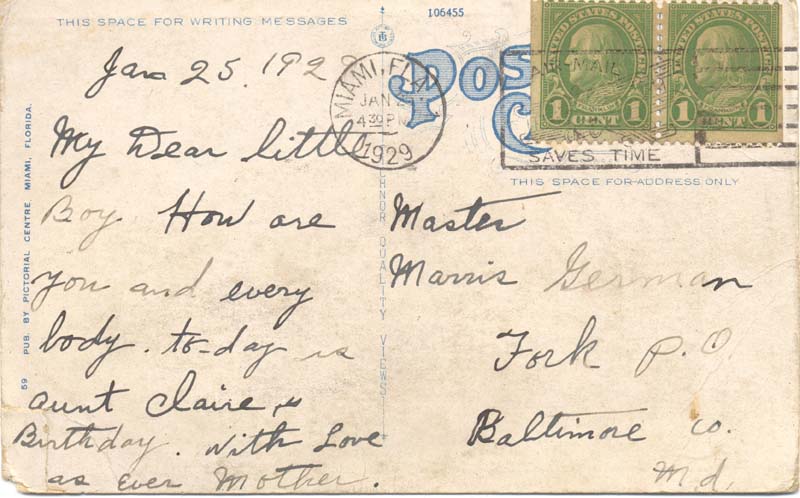 THIS SPACE FOR WRITING MESSAGES
106455
Jan 25. 192
My Dear little
Boy How are
you and every
body. to-day is
aunt Claire s
Birthday. With Love
as ever Mother.
MIAMI, FLA.
JAN 2
4 30 PM
1929
AIR-MAIL
SAVES TIME
UNITED STATES POSTAGE
1 CENT 1
UNITED STATES POSTAGE
1 CENT 1
POS
C
THIS SPACE FOR ADDRESS ONLY
Master
Marris German
Fork P.O
Baltimore Co.
Md.
59 PUB. BY PICTORIAL CENTRE MIAMI, FLORIDA.
CHNOR QUALITY VIEWS